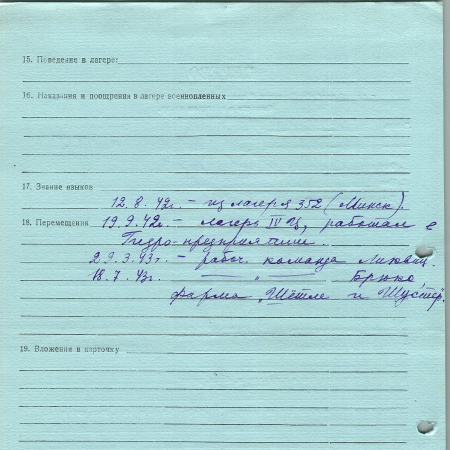 15. Поведение в лагере:
16. Наказания и поощрения в лагере военнопленных
17. Знание языков
12.8.42г. – из лагеря 352 (Минск).
18. Перемещения 19.9.42г. – лагерь IV Ц, работал в
Гидро-предприятии.
29.3.43г. – рабоч. команда
18.7.43г. – " – Брюкс
фирма „Шетле и Шустер".
19. Вложения в карточку